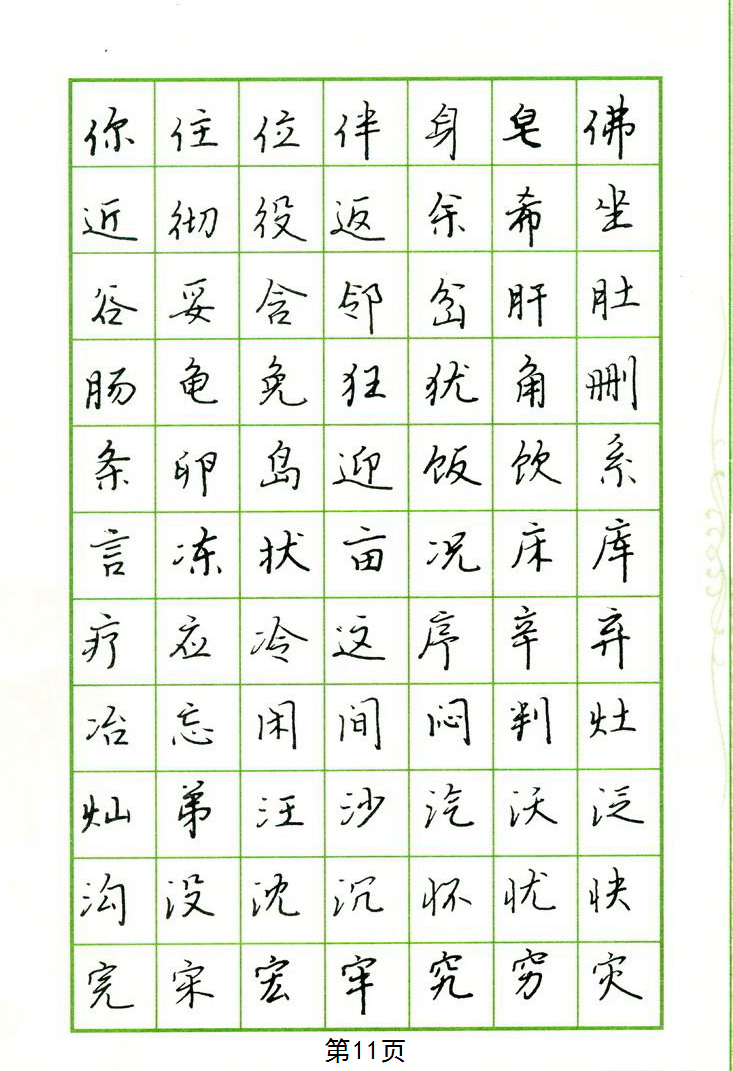 你住位伴身皂佛
近彻役返余希坐
谷妥含邻岔肝肚
肠龟免狂犹角删
条卵岛迎饭饮系
言冻状亩况床库
疗应冷这序辛弃
冶忘闲间闷判灶
灿弟汪沙汽沃泛
沟没沈沉怀忧快
完宋宏牢究穷灾
第11页